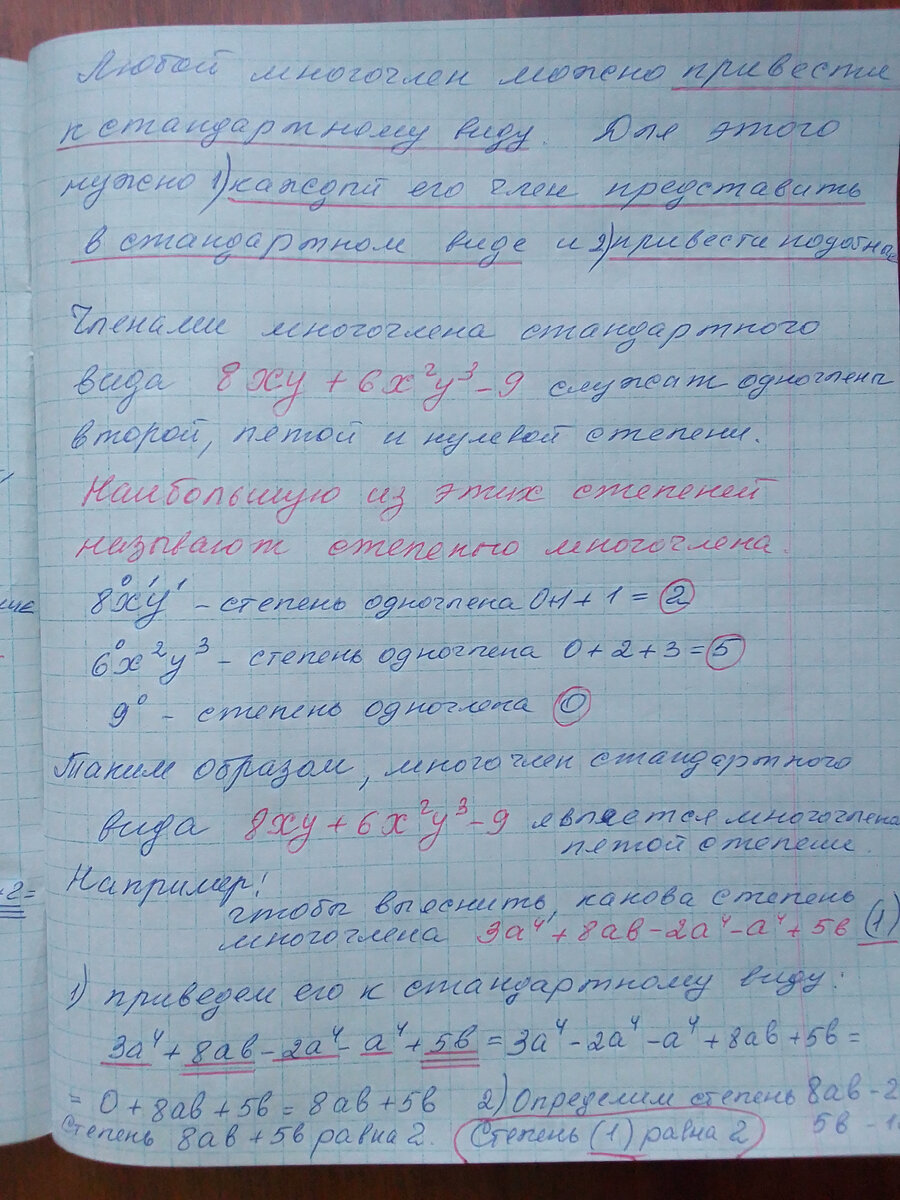 Любой многочлен можно привести
к стандартному виду. Для этого
нужно 1) каждый его член представить
в стандартном виде и 2) привести подобные
Членами многочлена стандартного
вида 8xy + 6x²y³ - 9 служат одночлены
второй, пятой и нулевой степени.
Наибольшую из этих степеней
называют степенью многочлена.
8⁰x¹y¹ - степень одночлена 0+1+1 = 2
6⁰x²y³ - степень одночлена 0+2+3=5
9⁰ - степень одночлена 0
Таким образом, многочлен стандартного
вида 8xy + 6x²y³ - 9 является многочлена
пятой степени.
Например:
чтобы выяснить, какова степень
многочлена 3a⁴ + 8ab - 2a⁴ - a⁴ + 5b (1)
1) приведем его к стандартному виду:
3a⁴ + 8ab - 2a⁴ - a⁴ + 5b = 3a⁴ - 2a⁴ - a⁴ + 8ab + 5b =
= 0 + 8ab + 5b = 8ab + 5b 2) Определим степень 8ab - 2
степень 8ab + 5b равна 2. Степень (1) равна 2 5b - 1
+2=